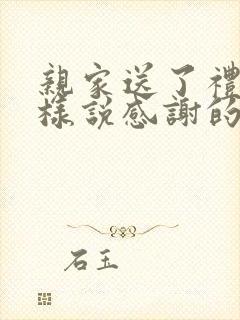 親家送了禮
樣說感謝的
石玉